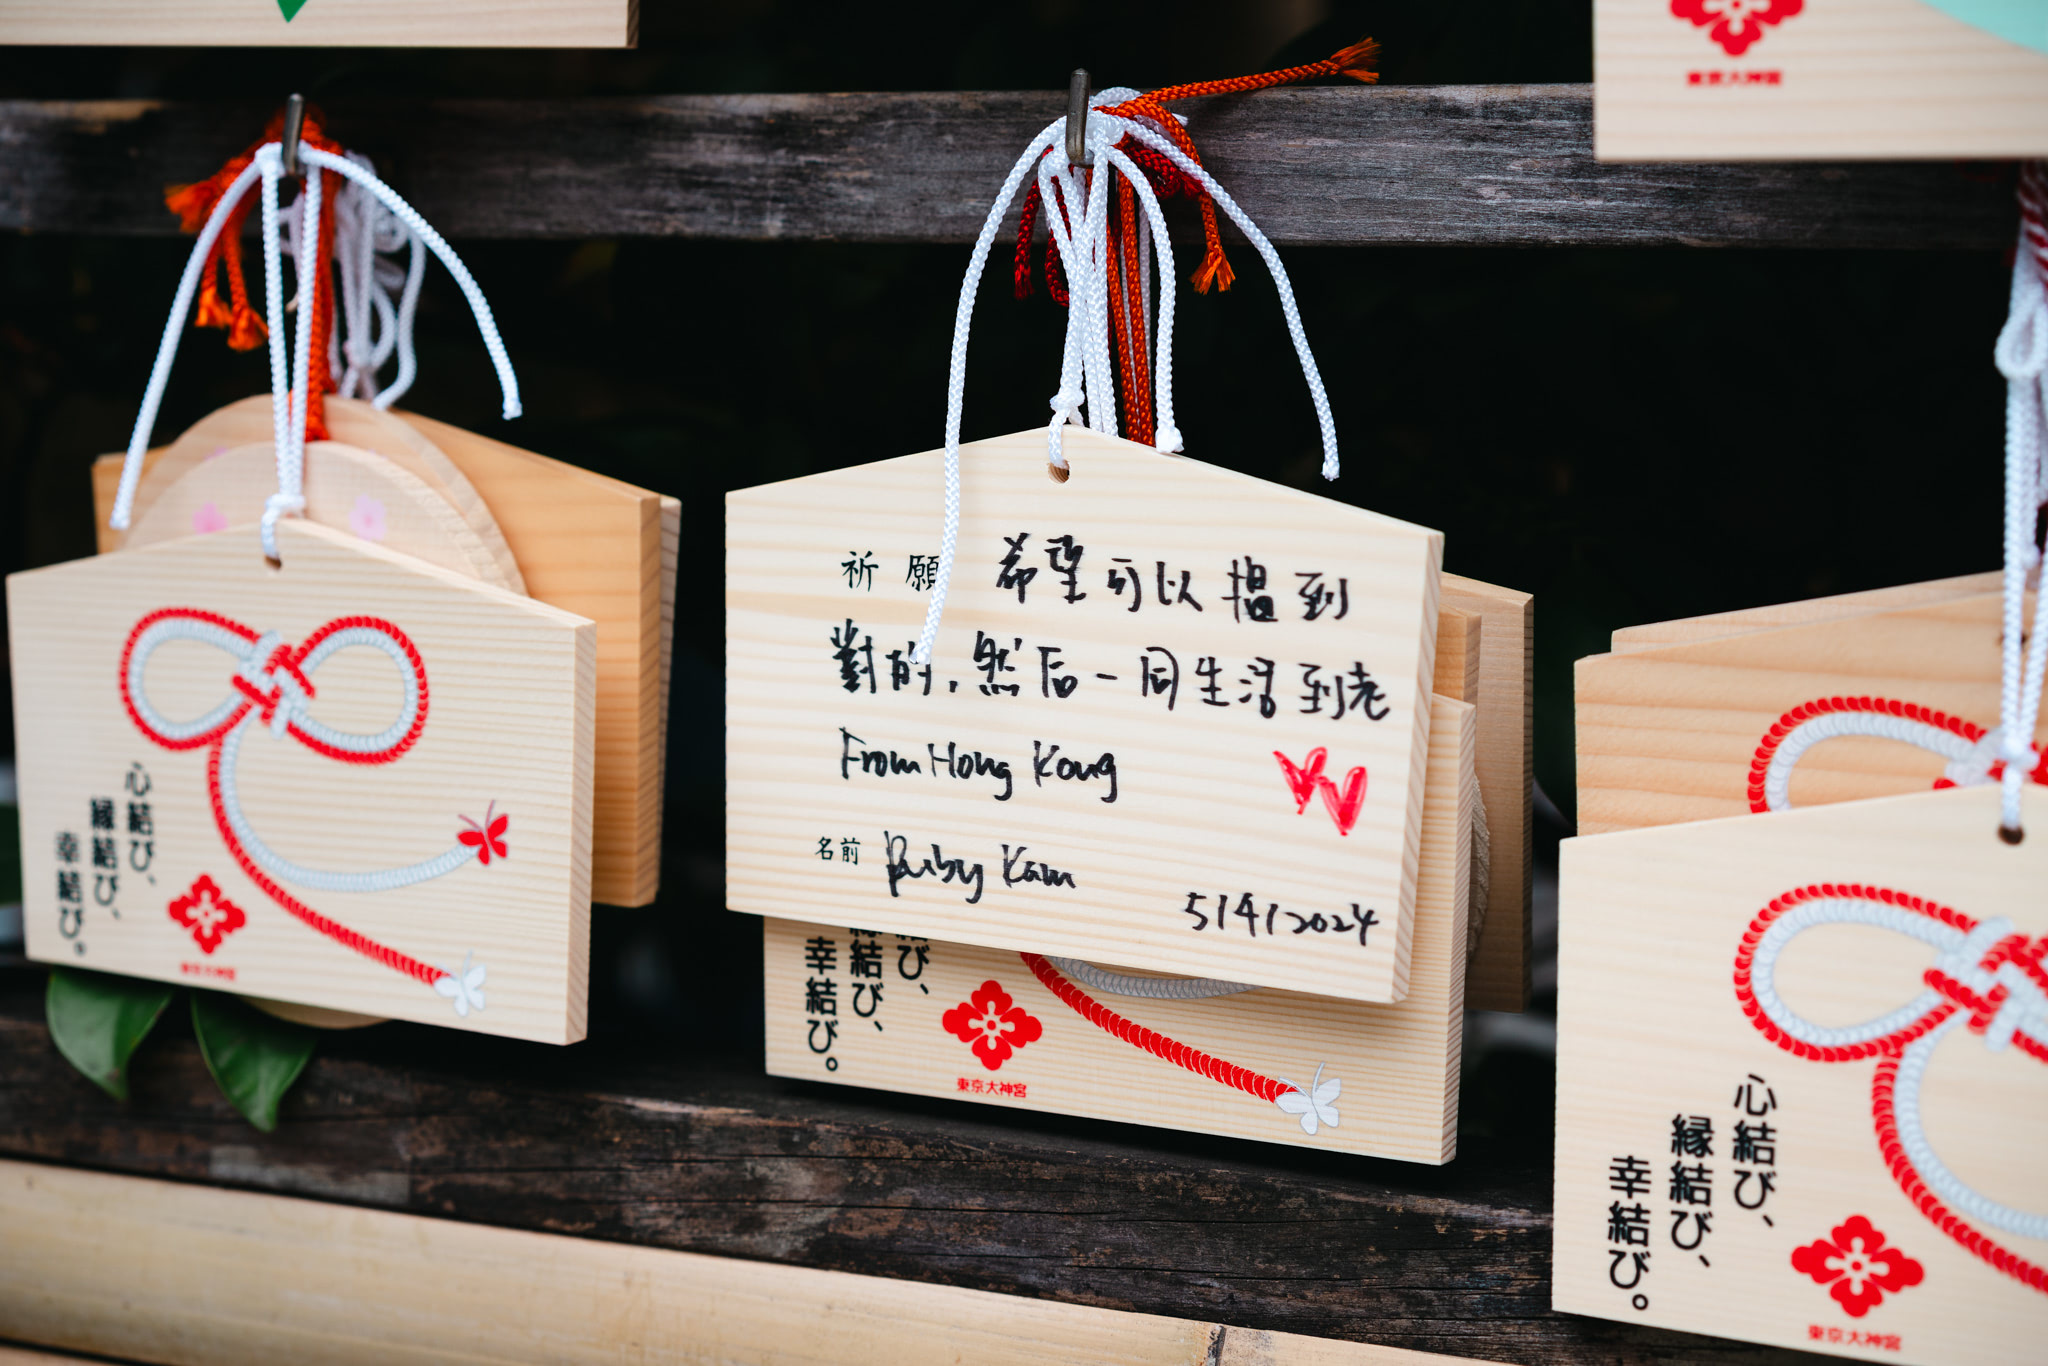 東京大神宮
祈願 希望可以搵到
對的,然后一同生活到老
From Hong Kong
名前 Ruby Kam
5/4/2024
心結び、
縁結び、
幸結び。
東京大神宮
結び、
縁結び、
幸結び。
東京大神宮
心結び、
縁結び、
幸結び。
東京大神宮